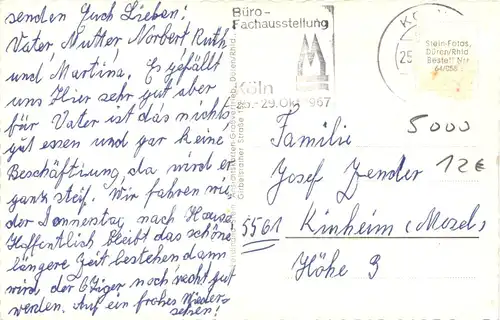 senden Euch Lieben!
Vater, Mutter, Norbert Ruth
und Martina. Es gefällt
uns Hier sehr gut aber
für Vater ist das nichts,
gut essen und gar keine
Beschäftigung, da wird er
ganz steif. Wir fahren wie
der Donnerstag nach Hause
Hoffentlich bleibt das schöne
längere Zeit bestehen dann
wird der 67iger noch recht gut
werden. Auf ein frohes Wieder
sehen!
Büro-
Fachausstellung
Köln
29. Okt. 1967
25
Stein-Fotos,
Düren/Rhld
Bestell Nr.
64/058
5000
12€
Familie
Josef Zender
5561 Kinheim (Mosel)
Höhe 9